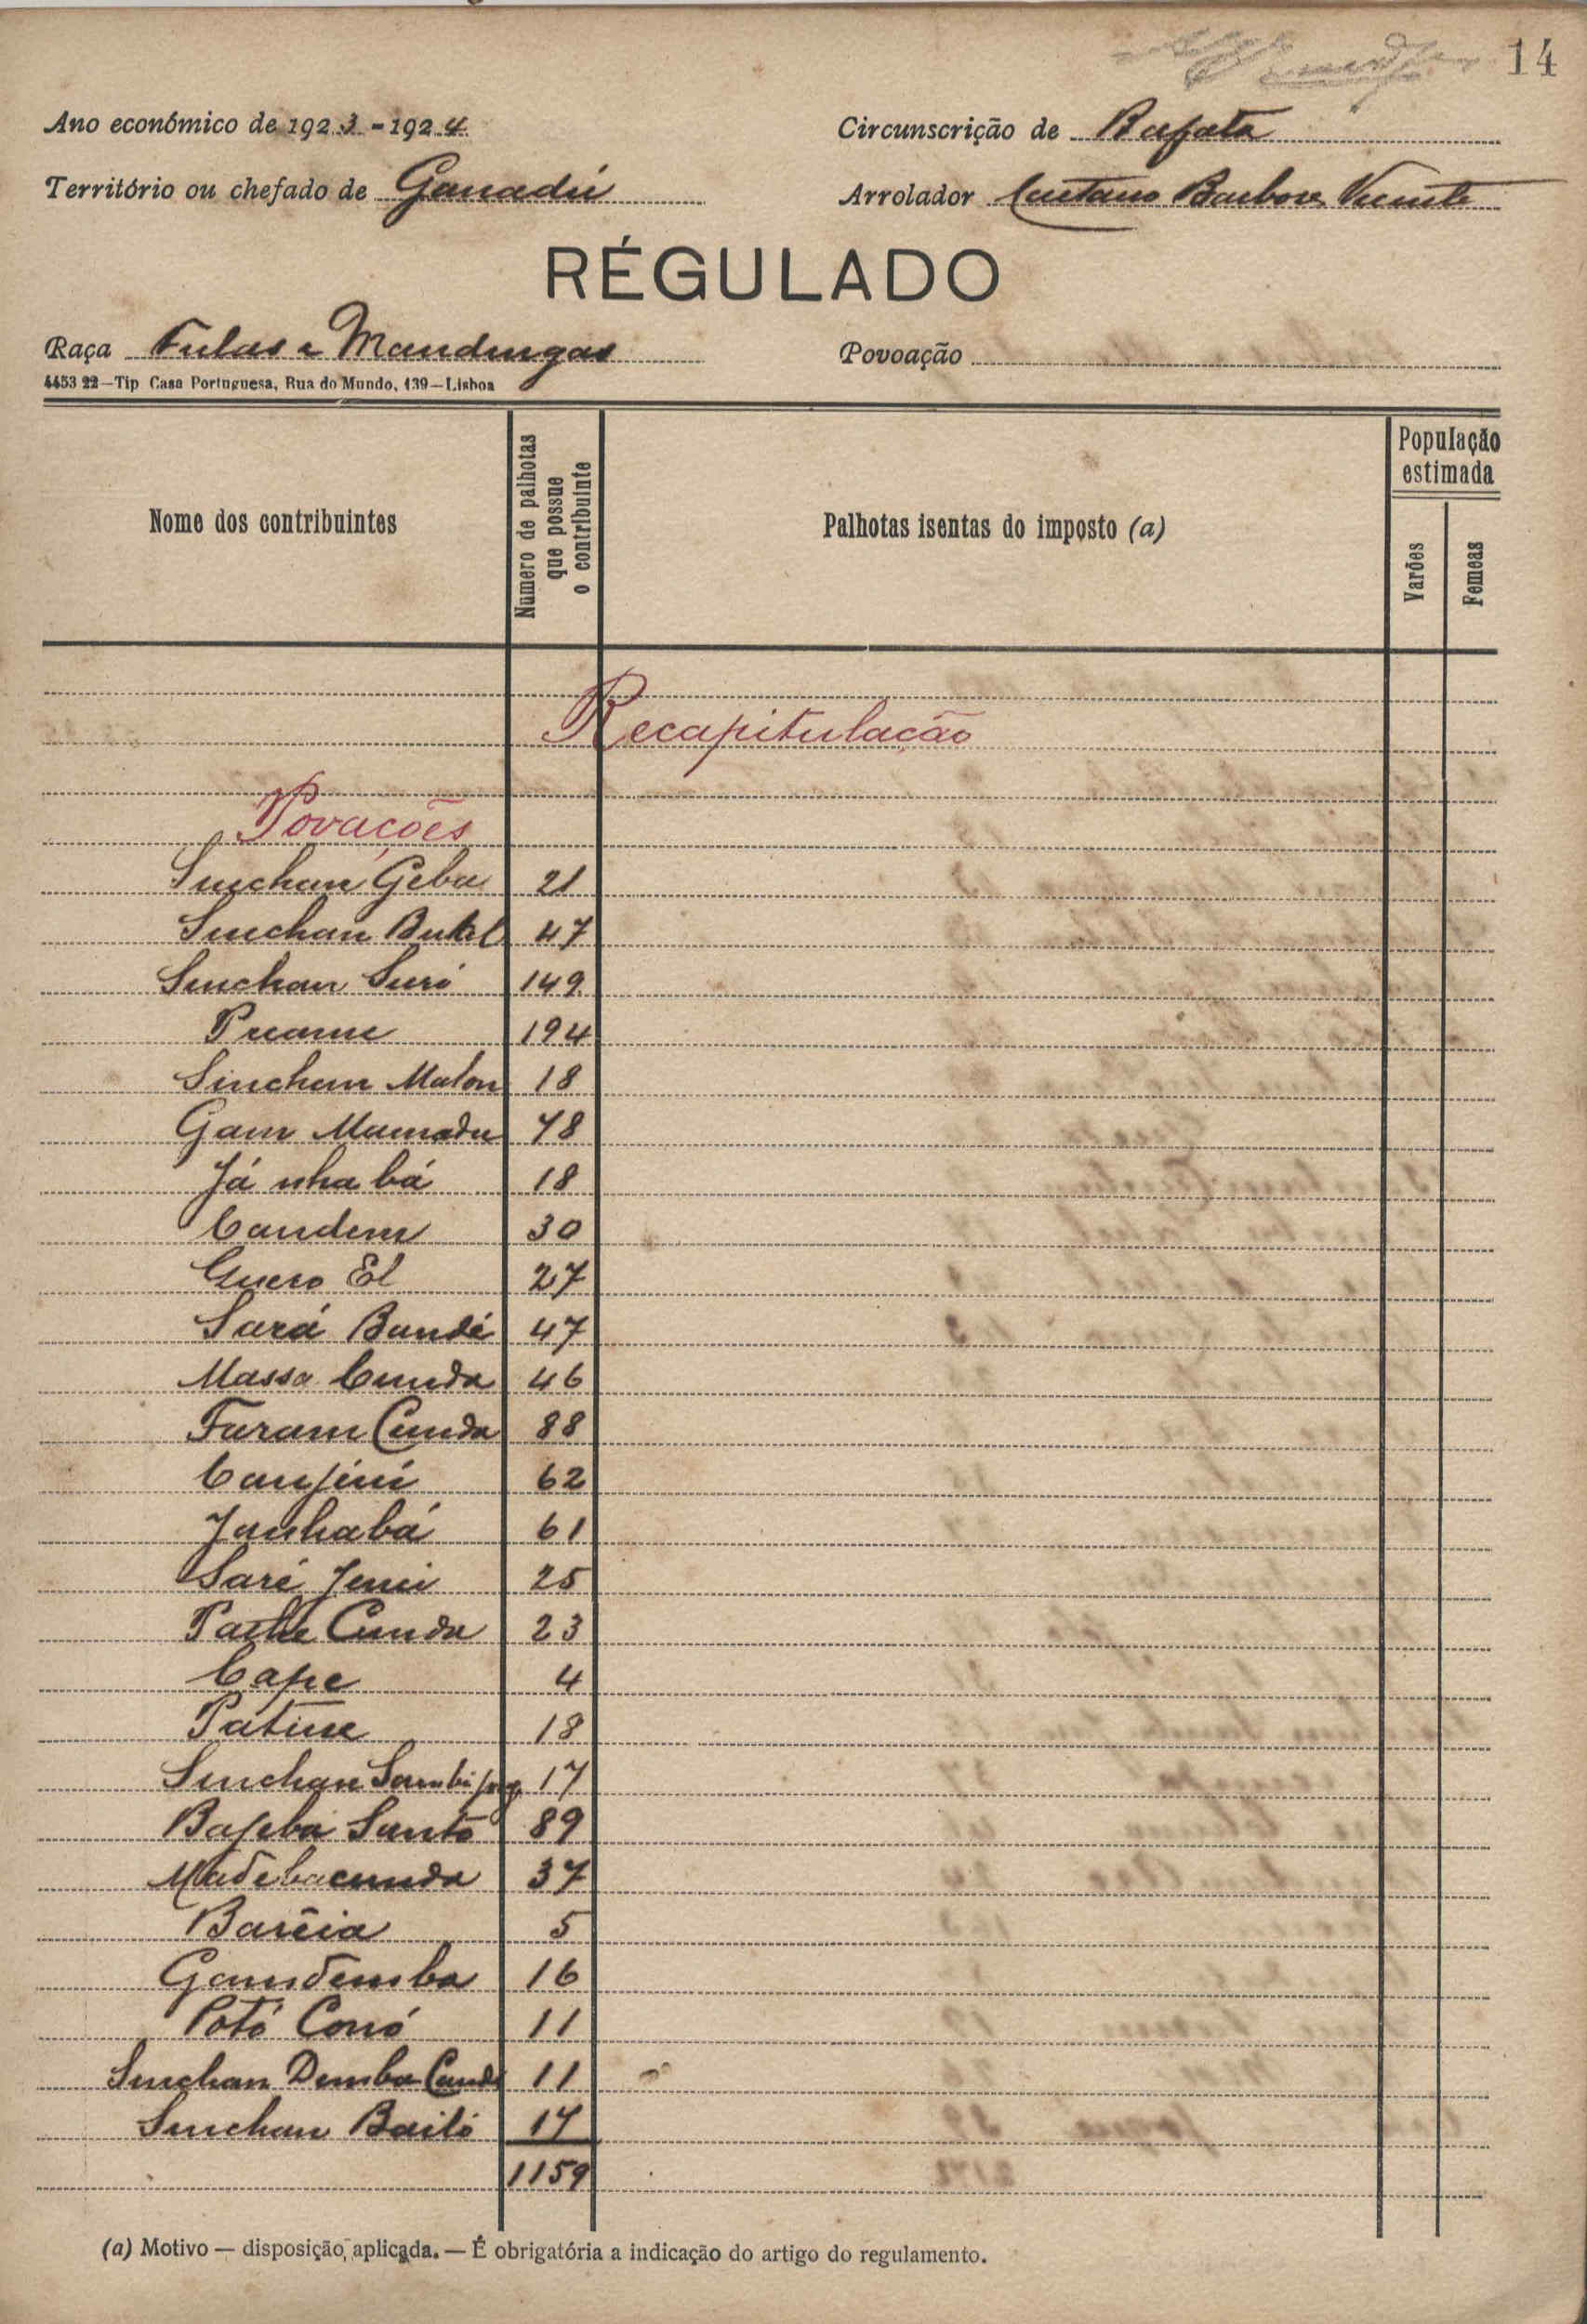 14
Ano económico de 1923-1924
Circunscrição de Bafata
Território ou chefado de Ganadú
Arrolador Caetano Barbosa Vicente
RÉGULADO
Raça Fulas e Mandingas
Povoação
4453 22—Tip Casa Portuguesa, Rua do Mundo, 139—Lisboa
Nome dos contribuintes
Número de palhotas que possue o contribuinte
Palhotas isentas do imposto (a)
População estimada
Varões
Femeas
Recapitulação
Povoações
Sinchan Geba 21
Sinchan 47
Sinchan Suri 149
194
Sinchan Malon 18
Gam Mamadu 78
Já nha bá 18
Candem 30
Guero El 27
Sará Bandé 47
Massa Cunda 46
Faram Cunda 88
Canjini 62
Janhabá 61
Saré 25
Pathe Cunda 23
Cape 4
Patime 18
Sinchan 17
Santo 89
Madebacunda 37
Barêia 5
Gamdemba 16
Potó Conó 11
Sinchan Demba Candé 11
Sinchan Bailó 17
1159
(a) Motivo — disposição aplicada. — É obrigatória a indicação do artigo do regulamento.